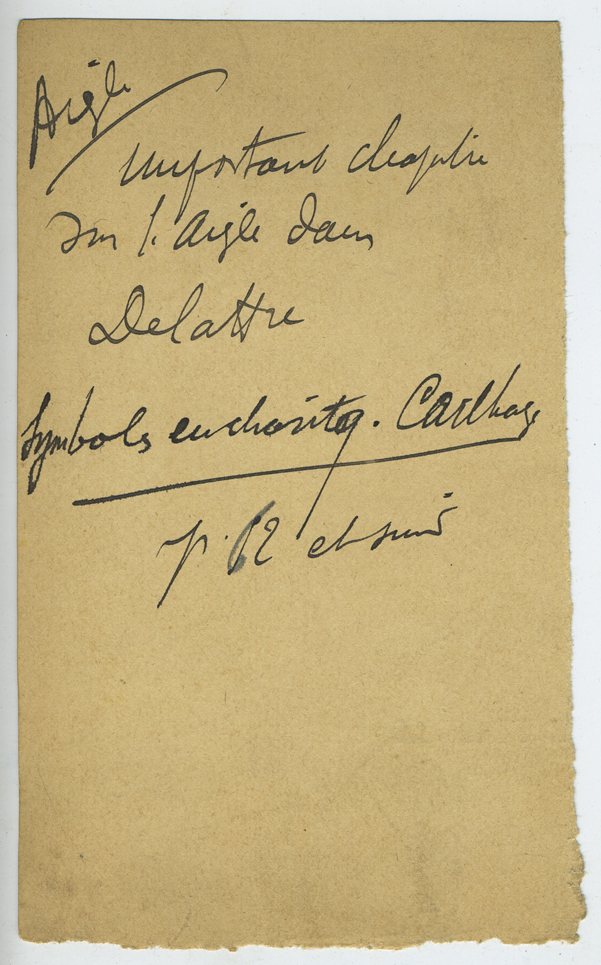 Aigle
important chapitre
sur l'aigle dans
Delattre
Symbols eucharistq. Carthage
p. 62 et suiv